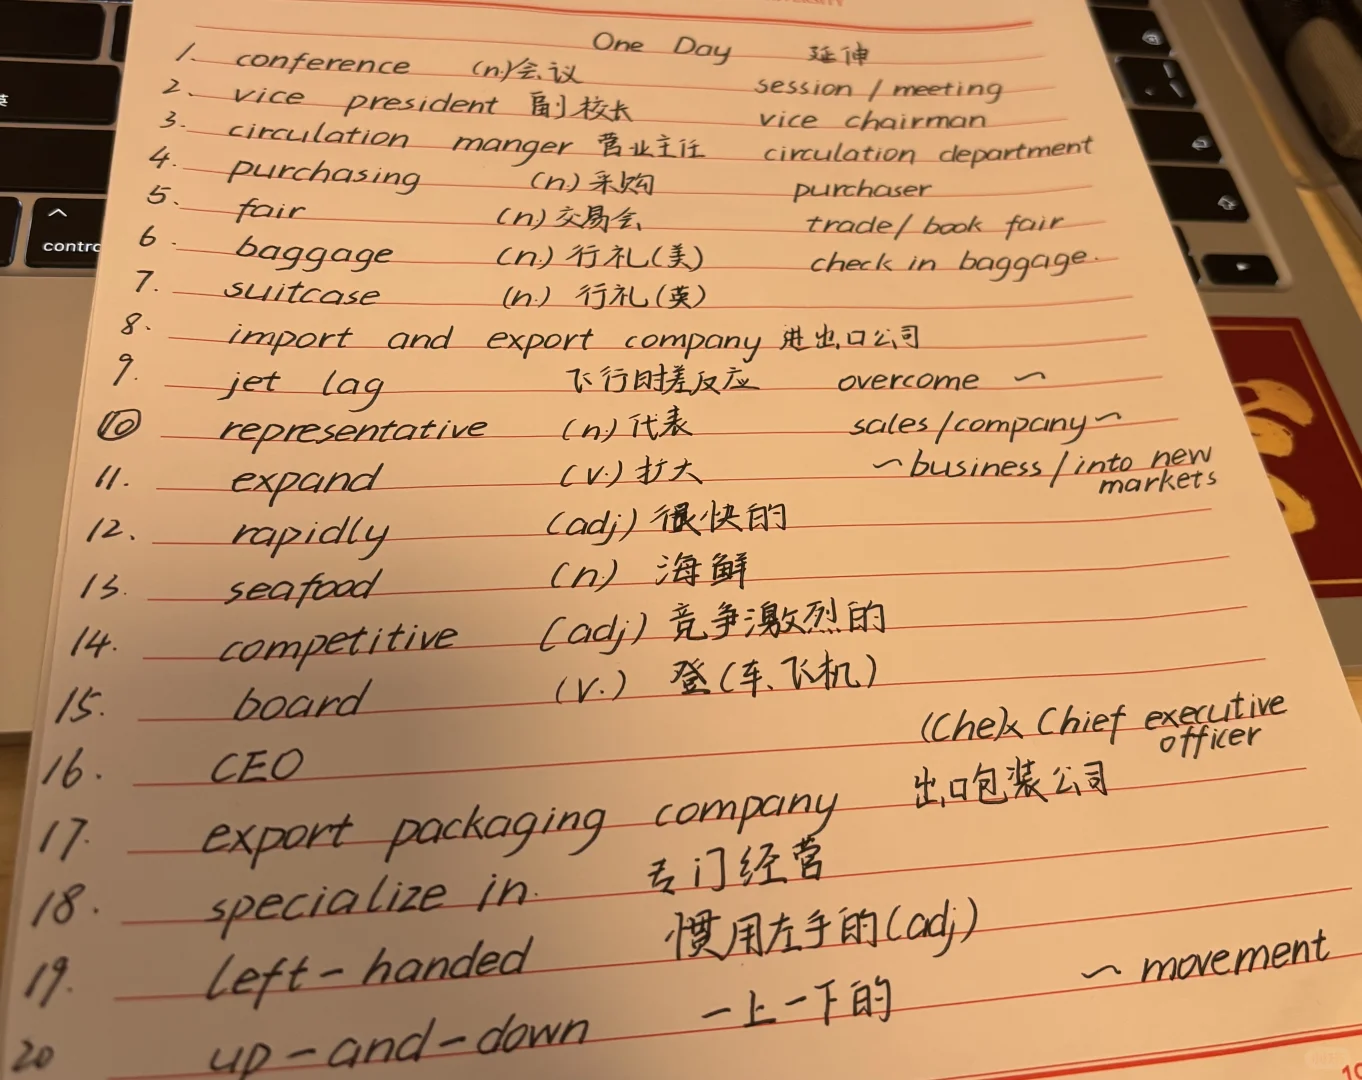 One Day 延伸
1. conference (n.)会议 session / meeting
2. vice president 副校长 vice chairman
3. circulation manger 营业主任 circulation department
4. purchasing (n.) 采购 purchaser
5. fair (n) 交易会 trade/ book fair
6. baggage (n.) 行礼(美) check in baggage.
7. suitcase (n.) 行礼(英)
8. import and export company 进出口公司
9. jet lag 飞行时差反应 overcome ~
10 representative (n.) 代表 sales/company~
11. expand (v.) 扩大 ~business / into new
markets
12. rapidly (adj) 很快的
13. seafood (n.) 海鲜
14. competitive (adj) 竞争激烈的
15. board (v.) 登(车、飞机)
16. CEO Chief executive
officer
17. export packaging company 出口包装公司
18. specialize in. 专门经营
19. left-handed 惯用左手的(adj)
20 up-and-down 一上一下的 ~ movement
contro
英